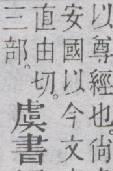 以尊經也。尙
安國以今文
直由切。
三部。
虞書